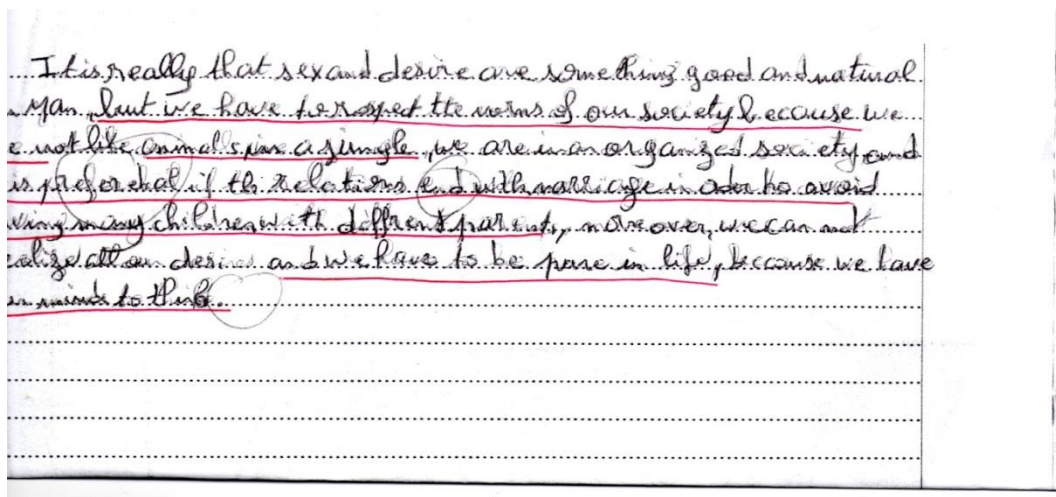 It is really that sex and desire are something good and natural
Man, but we have to respect the norms of our society because we
e not like animals in a jungle, we are in an organized society and
is preferebal if the relations end with marriage in oder to avoid
ving many children with diffrent parents, moreover, we can not
ealize all our desires and we have to be pure in life, because we have
minds to think.